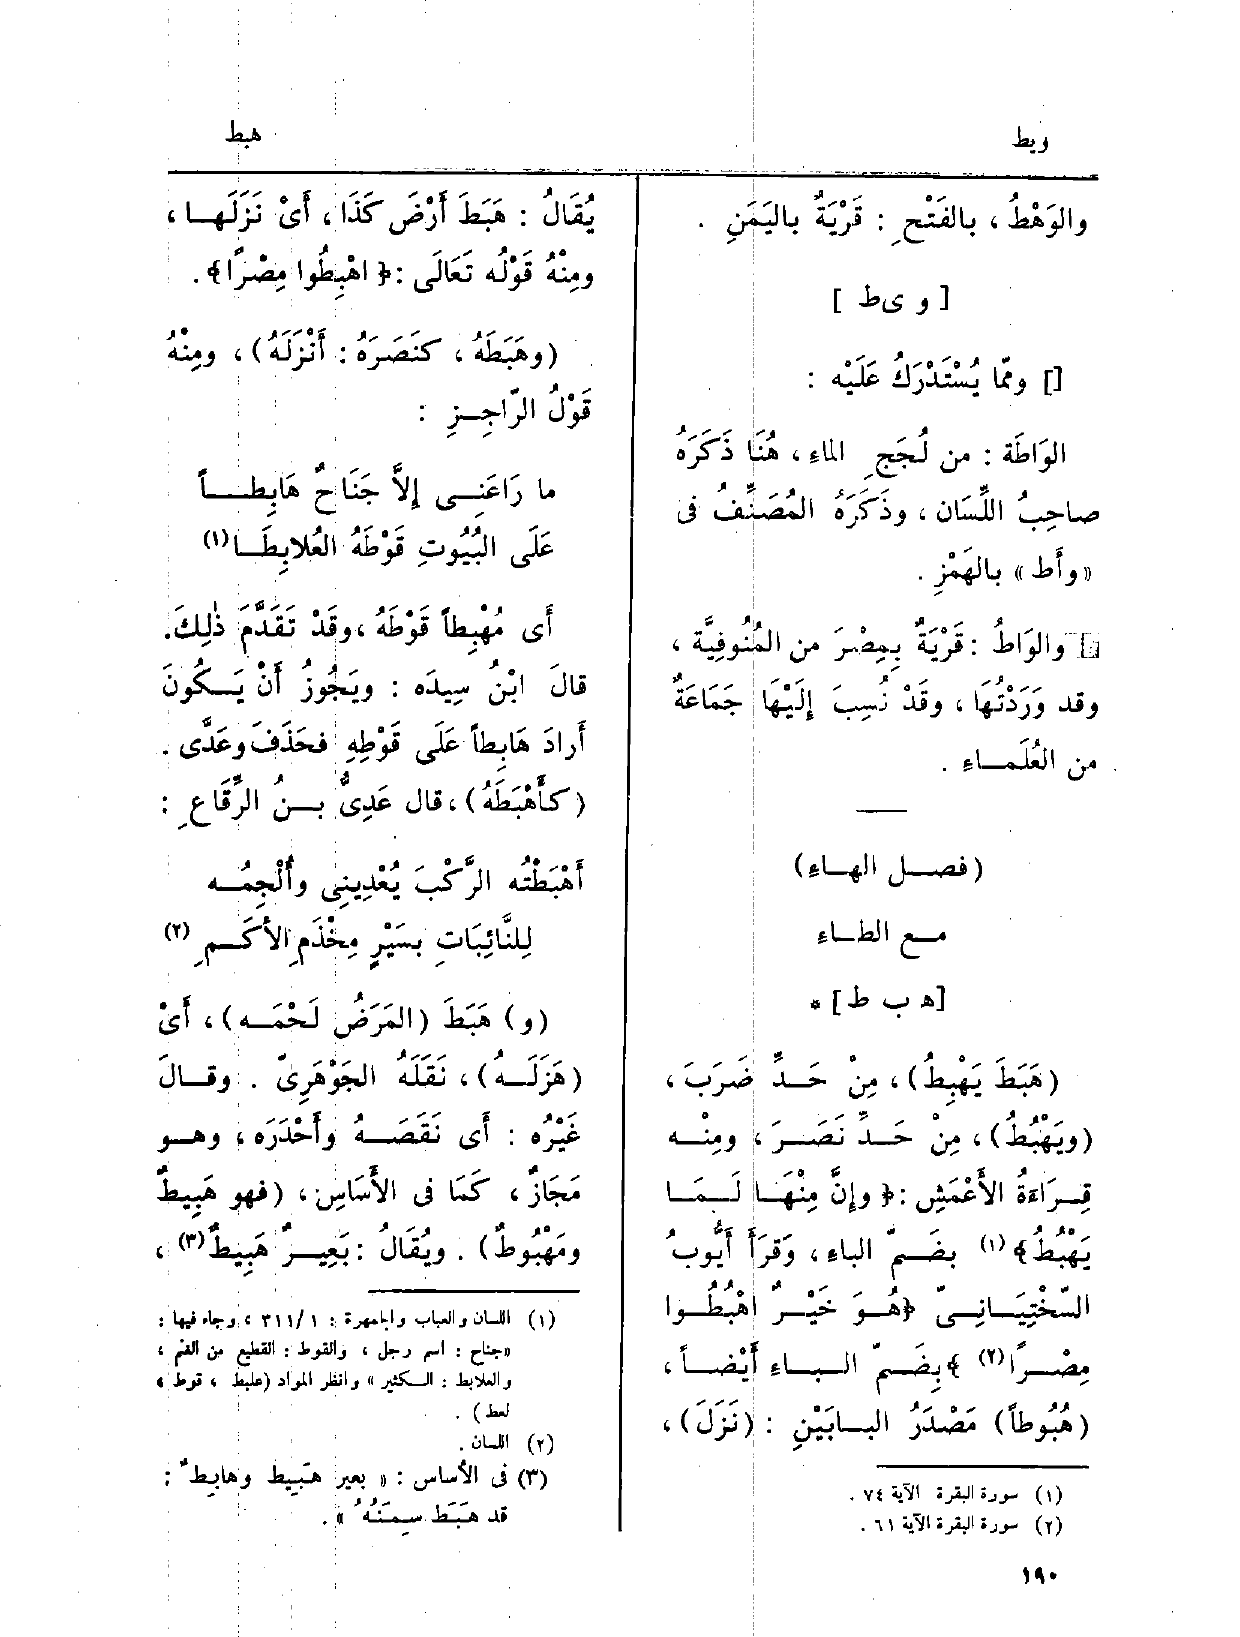 ويط
هبط
والوَهْطُ ، بالفَتْحِ : قَرْيَةٌ باليَمَنِ .
[ و ى ط ]
[] وممّا يُسْتَدْرَكُ عَلَيْه :
الوَاطَة : من لُجَجِ الماء ، هُنَا ذَكَرَهُ
صاحِبُ اللِّسَان ، وذَكَرَهُ المُصَنِّفُ فى
«وأط» بالهَمْزِ .
والوَاطُ : قَرْيَةٌ بِمِصْرَ من المُنُوفِيَّة ،
وقد وَرَدْتُهَا ، وقَدْ نُسِبَ إِلَيْهَا جَمَاعَةٌ
من العُلَمـاءِ .
(فصـل الهـاء)
مـع الطـاء
[ه ب ط] *
(هَبَطَ يَهْبِطُ) ، مِنْ حَـدِّ ضَرَبَ ،
(ويَهْبُطُ) ، مِنْ حَـدِّ نَصَـرَ ، ومِنْـه
قِـرَاءَةُ الأَعْمَشِ : ﴿ وإِنَّ مِنْهَـا لَـمَـا
يَهْبُطُ﴾ (١) بضَـمِّ الباءِ ، وَقَرَأَ أَيُّوبُ
السَّخْتِيَـانِـىّ ﴿هُـوَ خَيْـرٌ اهْبُطُـوا
مِصْـرًا(٢) ﴾بِضَـمِّ البـاءِ أَيْضـاً ،
(هُبُوطاً) مَصْدَرُ البـابَيْنِ : (نَزَلَ) ،
(١) سورة البقرة الآية ٧٤ .
(٢) سورة البقرة الآية ٦١ .
يُقَالُ : هَبَطَ أَرْضَ كَذَا ، أَىْ نَزَلَهـا ،
ومِنْهُ قَوْلُه تَعَالَى : ﴿ اهْبِطُوا مِصْرًا﴾ .
(وهَبَطَهُ ، كنَصَرَهُ : أَنْزَلَهُ) ، ومِنْهُ
قَوْلُ الرّاجِـزِ :
ما رَاعَنِـى إِلاَّ جَنَاحٌ هَابِطـاً
عَلَى البُيُوتِ قَوْطَهُ العُلابِطَـا(١)
أَى مُهْبِطاً قَوْطَهُ ، وقَدْ تَقَدَّمَ ذٰلِكَ.
قالَ ابْنُ سِيدَه : ويَجُوزُ أَنْ يَـكُونَ
أَرادَ هَابِطاً عَلَى قَوْطِهِ فحَذَفَ وعَدَّى .
(كأَهْبَطَهُ) ، قال عَدِىُّ بـنُ الرِّقَاعِ :
أَهْبَطْتُه الرَّكْبَ يُعْدِينِى وأُلْجِمُـه
لِلنَّائِبَاتِ بسَيْرٍ مِخْذَمِ الأَكَـمِ (٢)
(و) هَبَطَ (المَرَضُ لَحْمَـه) ، أَىْ
(هَزَلَـهُ) ، نَقَلَهُ الجَوْهَرِىّ . وقـالَ
غَيْرُه : أَى نَقَصَـهُ وأَحْدَرَه ، وهـو
مَجَازٌ ، كَمَا فى الأَسَاسِ ، (فهو هَبِيطٌ
ومَهْبُوطٌ) . ويُقَالُ : بَعِيـرٌ هَبِيطٌ(٣) ،
(١) اللسان والعباب والجمهرة : ٣١١/١ ، وجاء فيها :
«جناح : اسم رجل ، والقوط : القطيع من الغنم ،
والعلابط : الـكثير » وانظر المواد (علبط ، قوط ،
لعط) .
(٢) اللسان .
(٣) فى الأساس : « بعير هَبِيط وهابِط ٌ :
قد هَبَط سِمَنُهُ » .
١٩٠